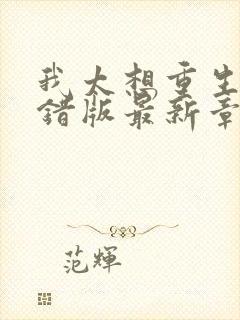 我太想重生
错版最新章
范辉